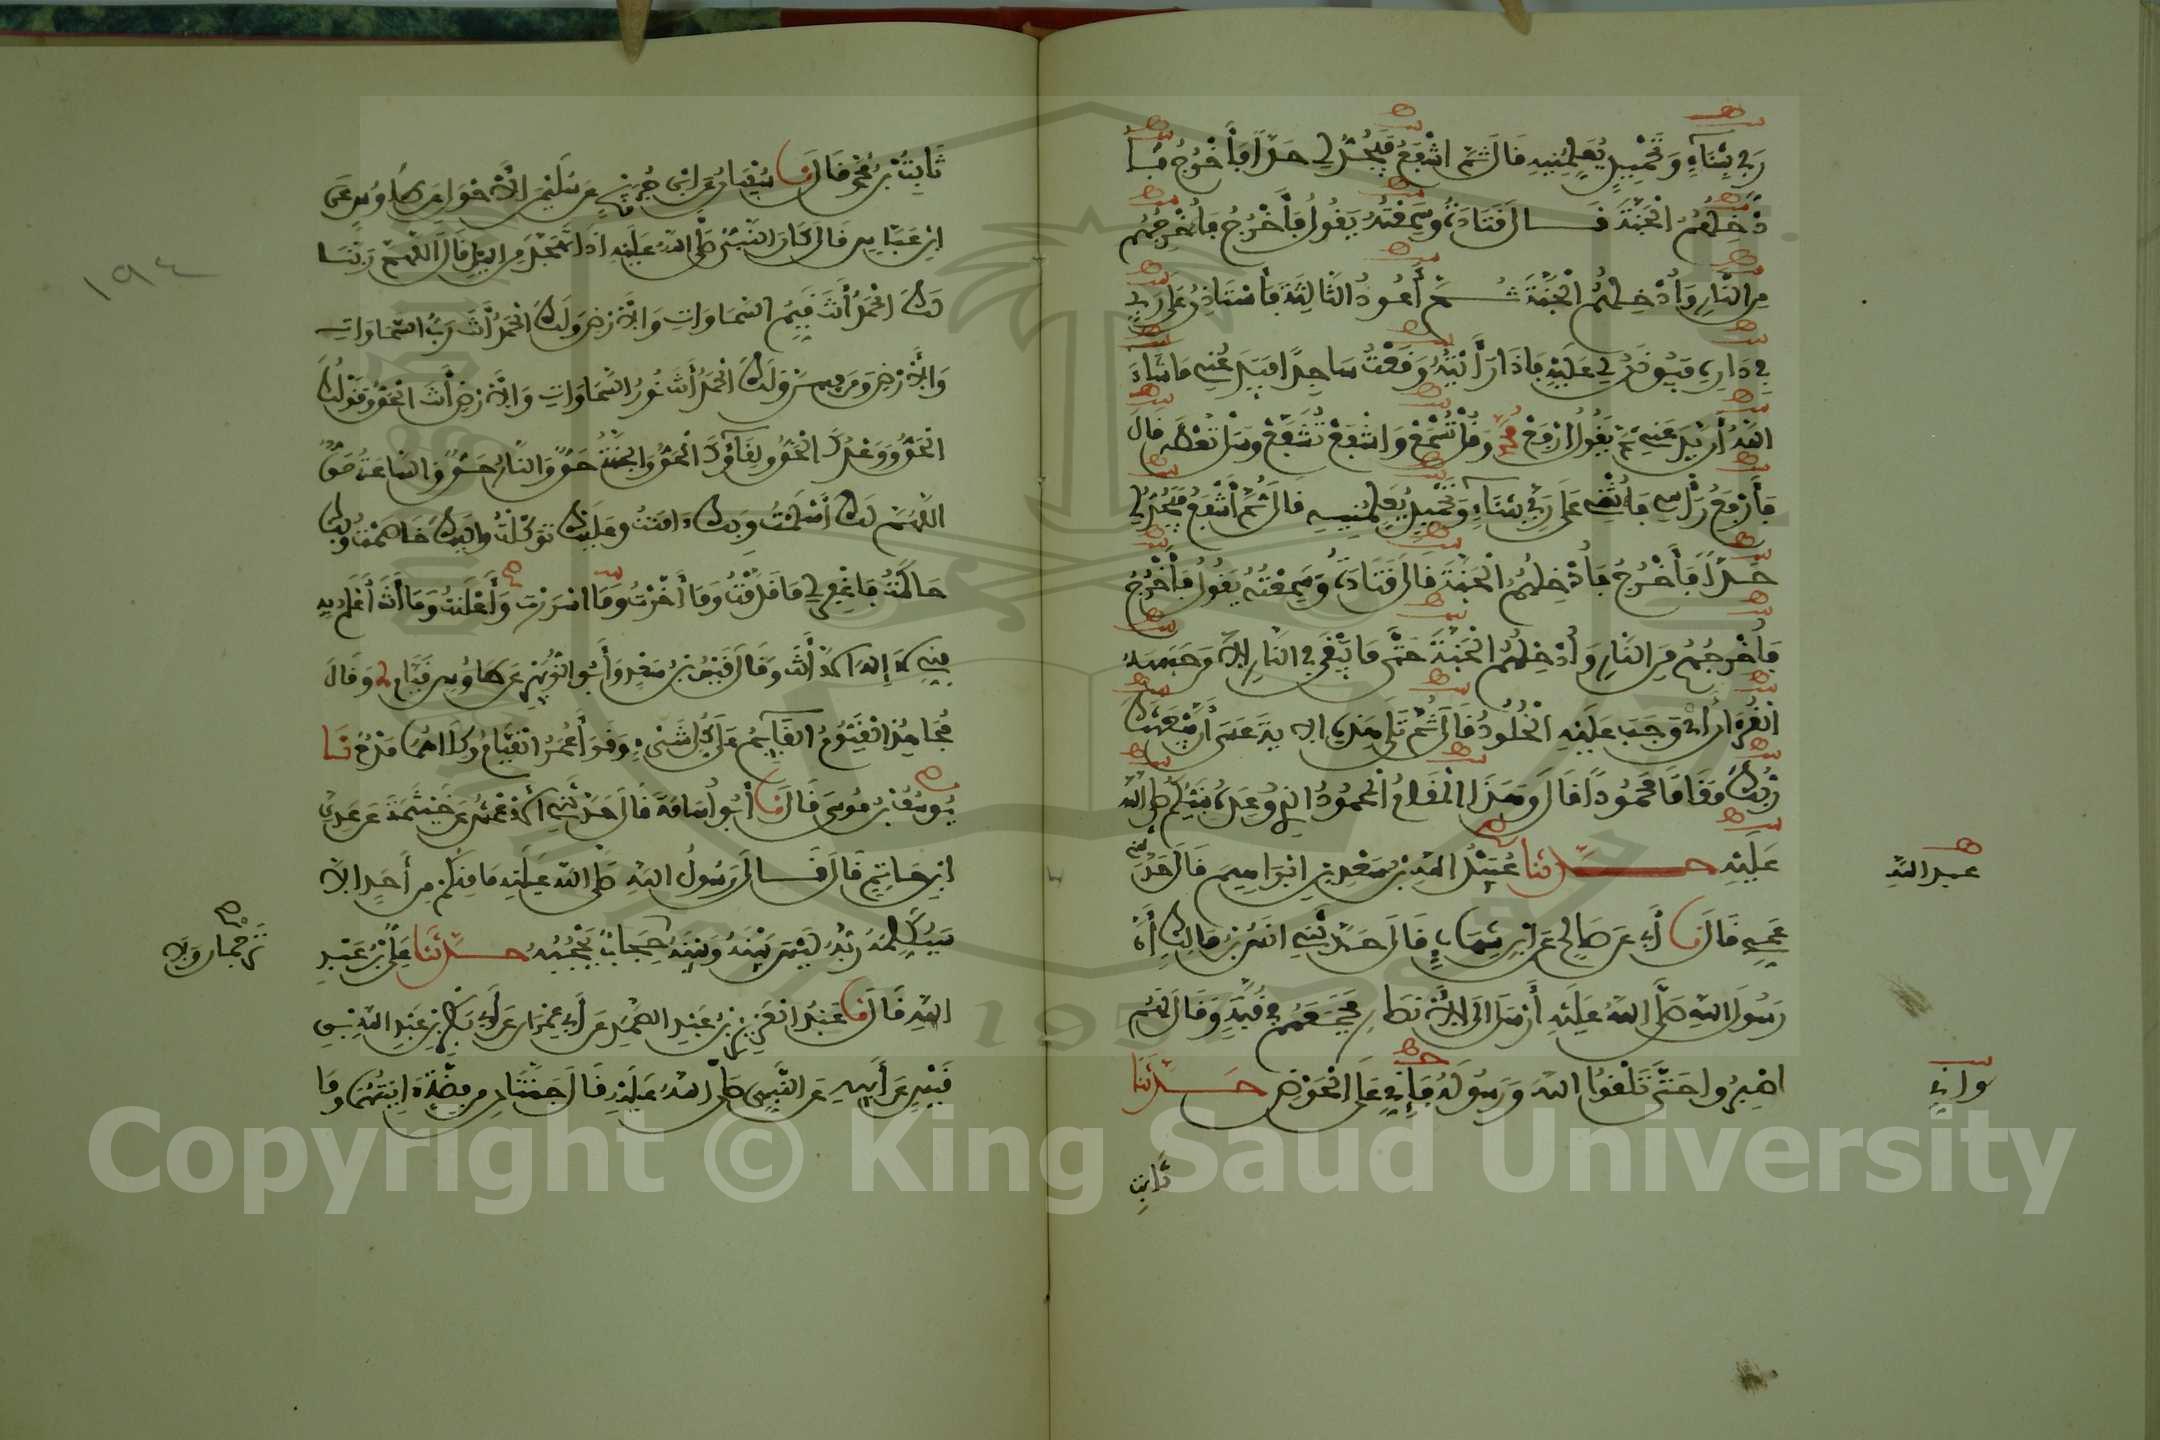 رَبِّي بِثَنَاءٍ وَتَحْمِيدٍ يُعَلِّمُنِيهِ قَالَ ثُمَّ أَشْفَعُ فَيَحُدُّ لِي حَدًّا فَأَخْرُجُ
فَأُدْخِلُهُمُ الْجَنَّةَ قَالَ قَتَادَةُ وَسَمِعْتُهُ يَقُولُ فَأَخْرُجُ فَأُخْرِجُهُمْ
مِنَ النَّارِ وَأُدْخِلُهُمُ الْجَنَّةَ ثُمَّ أَعُودُ الثَّالِثَةَ فَأَسْتَأْذِنُ عَلَى رَبِّي
فِي دَارِهِ فَيُوذَنُ لِي عَلَيْهِ فَإِذَا رَأَيْتُهُ وَقَعْتُ سَاجِدًا فَيَدَعُنِي مَا شَاءَ
اللَّهُ أَنْ يَدَعَنِي ثُمَّ يَقُولُ ارْفَعْ مُحَمَّدُ وَقُلْ تُسْمَعْ وَاشْفَعْ تُشَفَّعْ وَسَلْ تُعْطَهْ قَالَ
فَأَرْفَعُ رَأْسِي فَأُثْنِي عَلَى رَبِّي بِثَنَاءٍ وَتَحْمِيدٍ يُعَلِّمُنِيهِ قَالَ ثُمَّ أَشْفَعُ فَيَحُدُّ لِي
حَدًّا فَأَخْرُجُ فَأُدْخِلُهُمُ الْجَنَّةَ قَالَ قَتَادَةُ وَسَمِعْتُهُ يَقُولُ فَأَخْرُجُ
فَأُخْرِجُهُمْ مِنَ النَّارِ وَأُدْخِلُهُمُ الْجَنَّةَ حَتَّى مَا يَبْقَى فِي النَّارِ إِلَّا مَنْ حَبَسَهُ
الْقُرْآنُ أَيْ وَجَبَ عَلَيْهِ الْخُلُودُ قَالَ ثُمَّ تَلَا هَذِهِ الآيَةَ عَسَى أَنْ يَبْعَثَكَ
رَبُّكَ مَقَامًا مَحْمُودًا قَالَ وَهَذَا الْمَقَامُ الْمَحْمُودُ الَّذِي وُعِدَهُ نَبِيُّكُمْ صَلَّى اللَّهُ
عَلَيْهِ حَدَّثَنَا عُبَيْدُ اللَّهِ بْنُ سَعْدِ بْنِ إِبْرَاهِيمَ قَالَ حَدَّثَنِي
عَمِّي قَالَ نَا أَبِي عَنْ صَالِحٍ عَنِ ابْنِ شِهَابٍ قَالَ حَدَّثَنِي أَنَسُ بْنُ مَالِكٍ أَنَّ
رَسُولَ اللَّهِ صَلَّى اللَّهُ عَلَيْهِ أَرْسَلَ إِلَى الْأَنْصَارِ فَجَمَعَهُمْ فِي قُبَّةٍ وَقَالَ لَهُمُ
اصْبِرُوا حَتَّى تَلْقَوُا اللَّهَ وَرَسُولَهُ فَإِنِّي عَلَى الْحَوْضِ حَدَّثَنَا
ثَابِتُ
عبد الله
واني
ثَابِتُ بْنُ مُحَمَّدٍ قَالَ نَا سُفْيَانُ عَنِ ابْنِ جُرَيْجٍ عَنْ سُلَيْمَنَ الْأَحْوَلِ عَنْ طَاوُسٍ عَنِ
ابْنِ عَبَّاسٍ قَالَ كَانَ النَّبِيُّ صَلَّى اللَّهُ عَلَيْهِ إِذَا تَهَجَّدَ مِنَ اللَّيْلِ قَالَ اللَّهُمَّ رَبَّنَا
لَكَ الْحَمْدُ أَنْتَ قَيِّمُ السَّمَاوَاتِ وَالْأَرْضِ وَلَكَ الْحَمْدُ أَنْتَ رَبُّ السَّمَاوَاتِ
وَالْأَرْضِ وَمَنْ فِيهِنَّ وَلَكَ الْحَمْدُ أَنْتَ نُورُ السَّمَاوَاتِ وَالْأَرْضِ أَنْتَ الْحَقُّ وَقَوْلُكَ
الْحَقُّ وَوَعْدُكَ الْحَقُّ وَلِقَاؤُكَ الْحَقُّ وَالْجَنَّةُ حَقٌّ وَالنَّارُ حَقٌّ وَالسَّاعَةُ حَقٌّ
اللَّهُمَّ لَكَ أَسْلَمْتُ وَبِكَ ءَامَنْتُ وَعَلَيْكَ تَوَكَّلْتُ وَإِلَيْكَ خَاصَمْتُ وَبِكَ
حَاكَمْتُ فَاغْفِرْ لِي مَا قَدَّمْتُ وَمَا أَخَّرْتُ وَمَا أَسْرَرْتُ وَأَعْلَنْتُ وَمَا أَنْتَ أَعْلَمُ بِهِ
مِنِّي لَا إِلَهَ إِلَّا أَنْتَ وَقَالَ قَيْسُ بْنُ سَعْدٍ وَأَبُو الزُّبَيْرِ عَنْ طَاوُسٍ قَيَّام وَقَالَ
مُجَاهِدٌ الْقَيُّومُ الْقَائِمُ عَلَى كُلِّ شَيْءٍ وَقَرَأَ عُمَرُ الْقَيَّامُ وَكِلَاهُمَا مَدْحٌ نَا
يُوسُفُ بْنُ مُوسَى قَالَ نَا أَبُو أُسَامَةَ قَالَ حَدَّثَنِي الْأَعْمَشُ عَنْ خَيْثَمَةَ عَنْ عَدِيِّ
ابْنِ حَاتِمٍ قَالَ قَالَ رَسُولُ اللَّهِ صَلَّى اللَّهُ عَلَيْهِ مَا مِنْكُمْ مِنْ أَحَدٍ إِلَّا
سَيُكَلِّمُهُ رَبُّهُ لَيْسَ بَيْنَهُ وَبَيْنَهُ حِجَابٌ يَحْجُبُهُ حَدَّثَنَا عَلِيُّ بْنُ عَبْدِ
اللَّهِ قَالَ نَا عَبْدُ الْعَزِيزِ بْنُ عَبْدِ الصَّمَدِ عَنْ أَبِي عِمْرَانَ عَنْ أَبِي بَكْرِ بْنِ عَبْدِ اللَّهِ بْنِ
قَيْسٍ عَنْ أَبِيهِ عَنِ النَّبِيِّ صَلَّى اللَّهُ عَلَيْهِ قَالَ جَنَّتَانِ مِنْ فِضَّةٍ ءَانِيَتُهُمَا وَمَا
تُرْجُمَان وَلَا
١٩٤
Copyright © King Saud University
1957